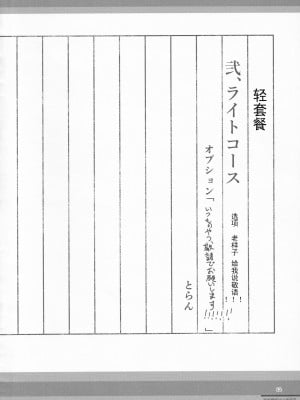 轻套餐
弐、ライトコース
选项 老样子 给我说敬语!!!
オプション「いつものやつ、敬語でお願いします!!!!!」
とらん
05